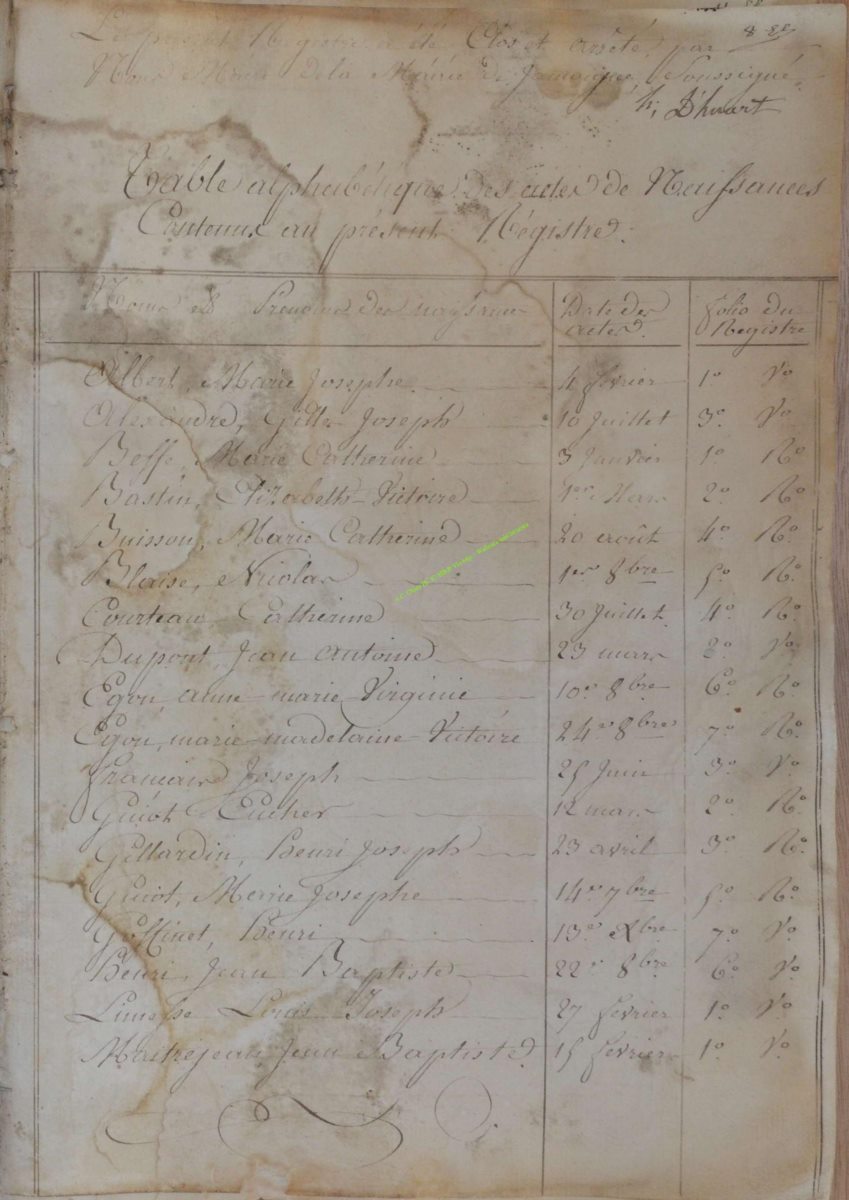 8 ff
Le présent Régistre a été Clos et arrêté par
Nous Maire de la Mairie de Jamoigne, Soussigné
h; D'huart
Table alphabétique des actes de Naissances
Contenus au présent Régistre.
Noms et Prénoms des naissances Date des actes. folio du Registre
Albert, Marie Josephe 4 février 1º Vº
Alexandre, Gille Joseph 10 Juillet 3º Vº
Beffe, Marie Catherine 3 Janvier 1º Rº
Bastin, Elizabeth-Victoire 1er Mars 2º Rº
Buisson, Marie Catherine 20 août 4º Rº
Blaise, Nicolas 1er 8bre 5º Rº
Courteau, Catherine 30 Juillet 4º Rº
Dupont, Jean antoine 23 mars 2º Vº
Egon, anne-marie Virginie 10 8bre 6º Rº
Egon, marie-madelaine-Victoire 24 8bre 7º Rº
francois Joseph 25 Juin 3º Vº
Guiot Eucher 12 mars 2º Rº
Gillardin, Henri Joseph 23 avril 3º Rº
Guiot, Marie Josephe 14 7bre 5º Rº
Goffinet, Henri 13 Xbre 7º Vº
Henri, Jean Baptiste 22 8bre 6º Vº
Limesse Louis Joseph 27 février 1º Vº
Maitrejean, Jean Baptiste 15 février 1º Vº